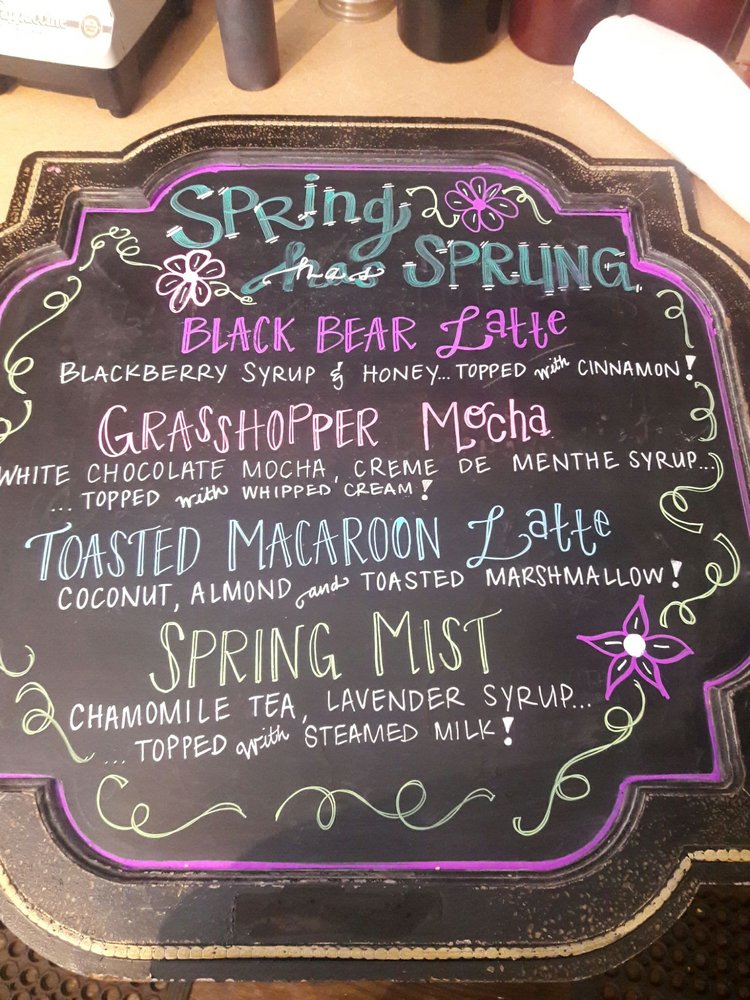 SPRing
has SPRUNG
BLACK BEAR Latte
BLACKBERRY SYRUP & HONEY... TOPPED with CINNAMON!
GRASSHOPPER Mocha
WHITE CHOCOLATE MOCHA, CREME DE MENTHE SYRUP...
... TOPPED with WHIPPED CREAM!
TOASTED MACAROON Latte
COCONUT, ALMOND and TOASTED MARSHMALLOW!
SPRING MIST
CHAMOMILE TEA, LAVENDER SYRUP...
... TOPPED with STEAMED MILK!